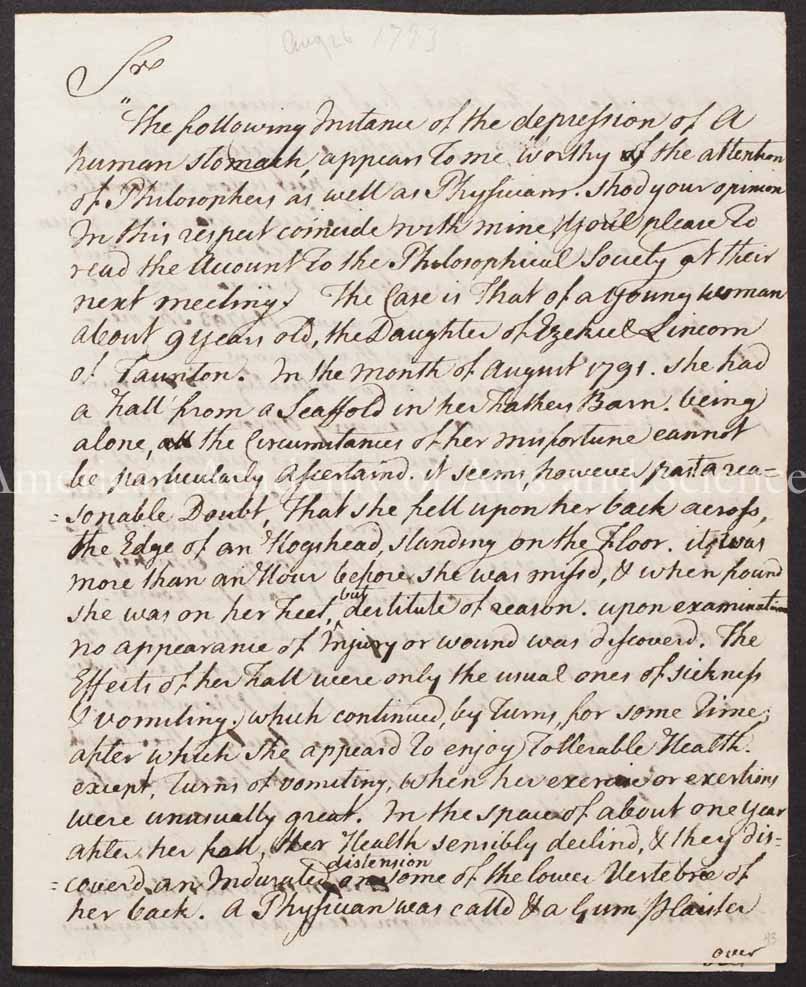 Aug 26 1793
Sir
"The following Instance of the depression of A
human stomach, appears to me worthy of the attention
of Philosophers as well as Physicians. Shod your opinion
In this respect coincide with mine you'l please to
read the Account to the Philosophical Society at their
next meeting. The Case is That of a Young woman
about 9 years old, the Daughter of Ezekiel Lincorn
of Taunton. In the month of August 1791. She had
a Fall from a Scaffold in her Fathers Barn. being
alone, all the Circumstances of her misfortune cannot
be particularly Ascertaind. it seems however past a rea-
=sonable Doubt, That she fell upon her back across,
the Edge of an Hogshead, standing on the Floor. it was
more than an Hour before she was missd, & when found
she was on her Feet, but destitute of reason. upon examination
no appearance of Injury or wound was discoverd. The
Effects of her Fall were only the usual ones of sickness
& vomiting, which continued, by Turns, for some Time;
after which she appeard to enjoy Tollerable Health.
except, Turns of vomiting, when her exercise or exertions
were unusually great. In the space of about one Year
after her fall, Her Health sensibly declind, & they dis-
=coverd an Indurated distension on some of the lower Vertebre of
her back. A Physician was calld & a Gum Plaister
over
93
American Academy of Arts and Sciences